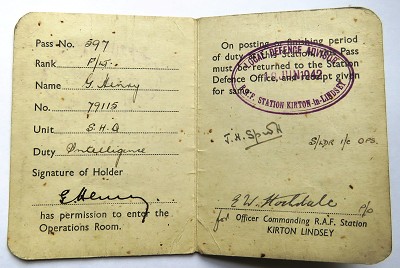 Pass No. 397
Rank P/O.
Name G. Henry
No. 79115
Unit S.H.Q
Duty Intelligence
Signature of Holder
G Henry
has permission to enter the
Operations Room.
On posting or finishing period
of duty at this Station this Pass
must be returned to the Station
Defence Office, and receipt given
for same.
LOCAL DEFENCE ADVISOR
JUN 1942
R.A.F. STATION KIRTON-in-LINDSEY
S/LDR i/c OPS.
P/O
for Officer Commanding R.A.F. Station
KIRTON LINDSEY